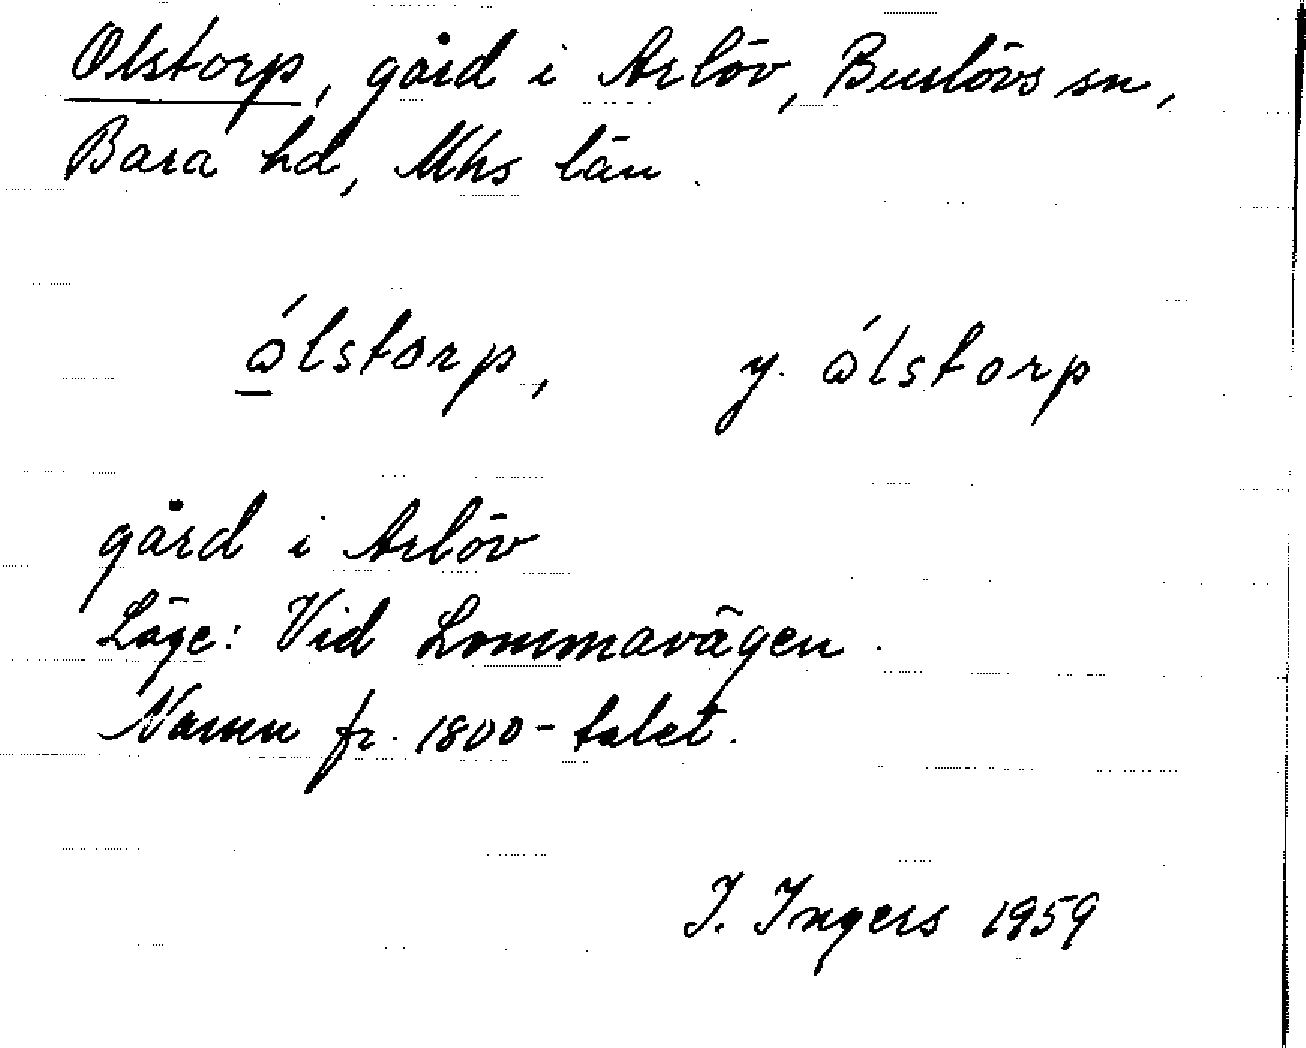 Olstorp, gård i Arlöv, Burlövs sn,
Bara hd, Mhs län.
ólstorp, y. ólstorp
gård i Arlöv
Läge: Vid Lommavägen.
Namn fr. 1800-talet.
I. Ingers 1959